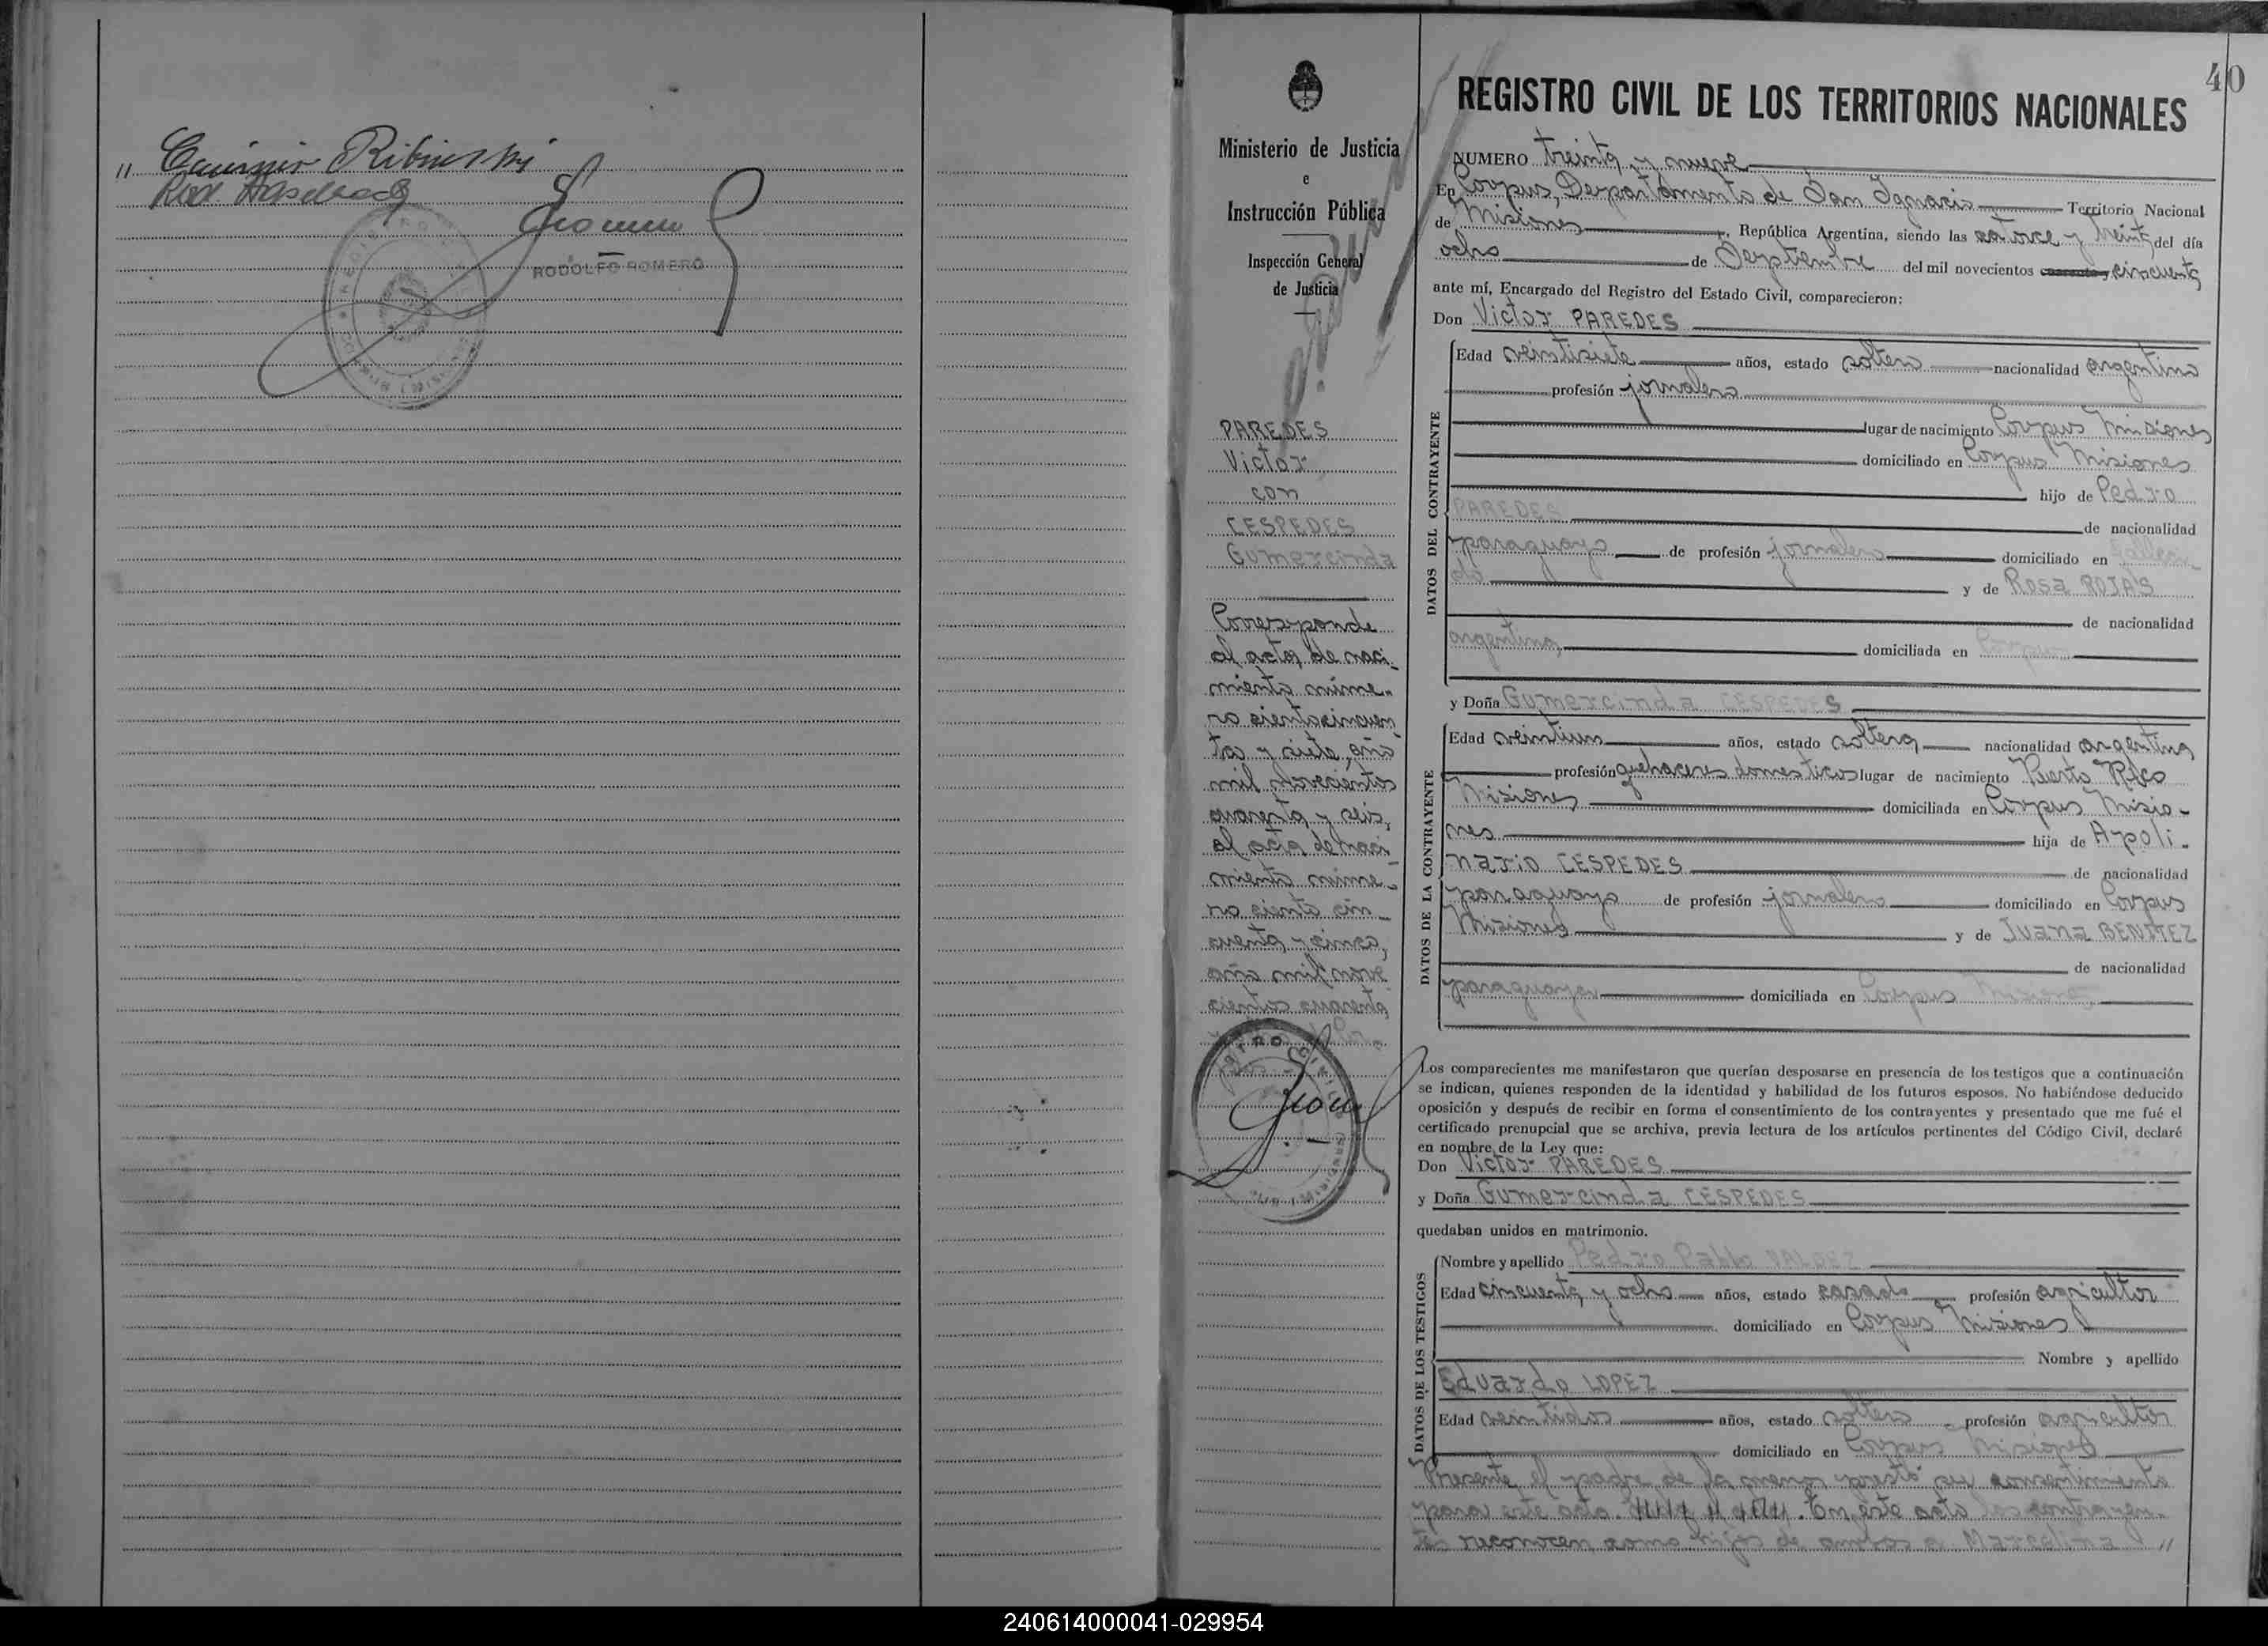 " Casimiro Ribinski
RODOLFO ROMERO
40
Ministerio de Justicia
e
Instrucción Pública
Inspección General
de Justicia
PAREDES
Victor
con
CESPEDES
Gumercinda
Corresponde
al acta de naci-
miento núme-
ro ciento cincuen
ta y siete, año
mil novecientos
cuarenta y seis,
al acta de naci
miento núme-
ro ciento cin-
cuenta y cinco,
año mil nove
cientos cuarenta
REGISTRO CIVIL DE LOS TERRITORIOS NACIONALES
NUMERO treinta y nueve
En Corpus, Departamento de San Ignacio Territorio Nacional
de Misiones, República Argentina, siendo las catorce y treinta del día
ocho de Septiembre del mil novecientos cincuenta
ante mí, Encargado del Registro del Estado Civil, comparecieron:
Don Victor PAREDES
DATOS DEL CONTRAYENTE
Edad veintisiete años, estado soltero nacionalidad argentino
profesión jornalero
lugar de nacimiento Corpus Misiones
domiciliado en Corpus Misiones
hijo de Pedro
PAREDES de nacionalidad
paraguayo de profesión jornalero domiciliado en falleci-
do y de Rosa ROJAS
de nacionalidad
argentina domiciliada en Corpus
y Doña Gumercinda CESPEDES
DATOS DE LA CONTRAYENTE
Edad veintiun años, estado soltera nacionalidad argentina
profesión quehaceres domesticos lugar de nacimiento Puerto Rico
Misiones domiciliada en Corpus Misio-
nes hija de Apoli-
nario CESPEDES de nacionalidad
paraguayo de profesión jornalero domiciliado en Corpus
Misiones y de Juana BENITEZ
de nacionalidad
paraguaya domiciliada en Corpus Misiones
Los comparecientes me manifestaron que querían desposarse en presencia de los testigos que a continuación
se indican, quienes responden de la identidad y habilidad de los futuros esposos. No habiéndose deducido
oposición y después de recibir en forma el consentimiento de los contrayentes y presentado que me fué el
certificado prenupcial que se archiva, previa lectura de los artículos pertinentes del Código Civil, declaré
en nombre de la Ley que:
Don Victor PAREDES
y Doña Gumercinda CESPEDES
quedaban unidos en matrimonio.
DATOS DE LOS TESTIGOS
Nombre y apellido Pedro Pablo VALDEZ
Edad cincuenta y ocho años, estado casado profesión agricultor
domiciliado en Corpus Misiones
Nombre y apellido
Eduardo LOPEZ
Edad veintidos años, estado soltero profesión agricultor
domiciliado en Corpus Misiones
Presente el padre de la menor prestó su consentimiento
para este acto. En este acto los contrayen-
tes reconocen como hijos de ambos a Marcelina "
240614000041-029954